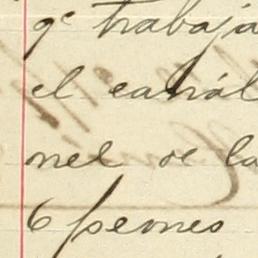 qe trabaja
el catrál
nel de la
6 peones